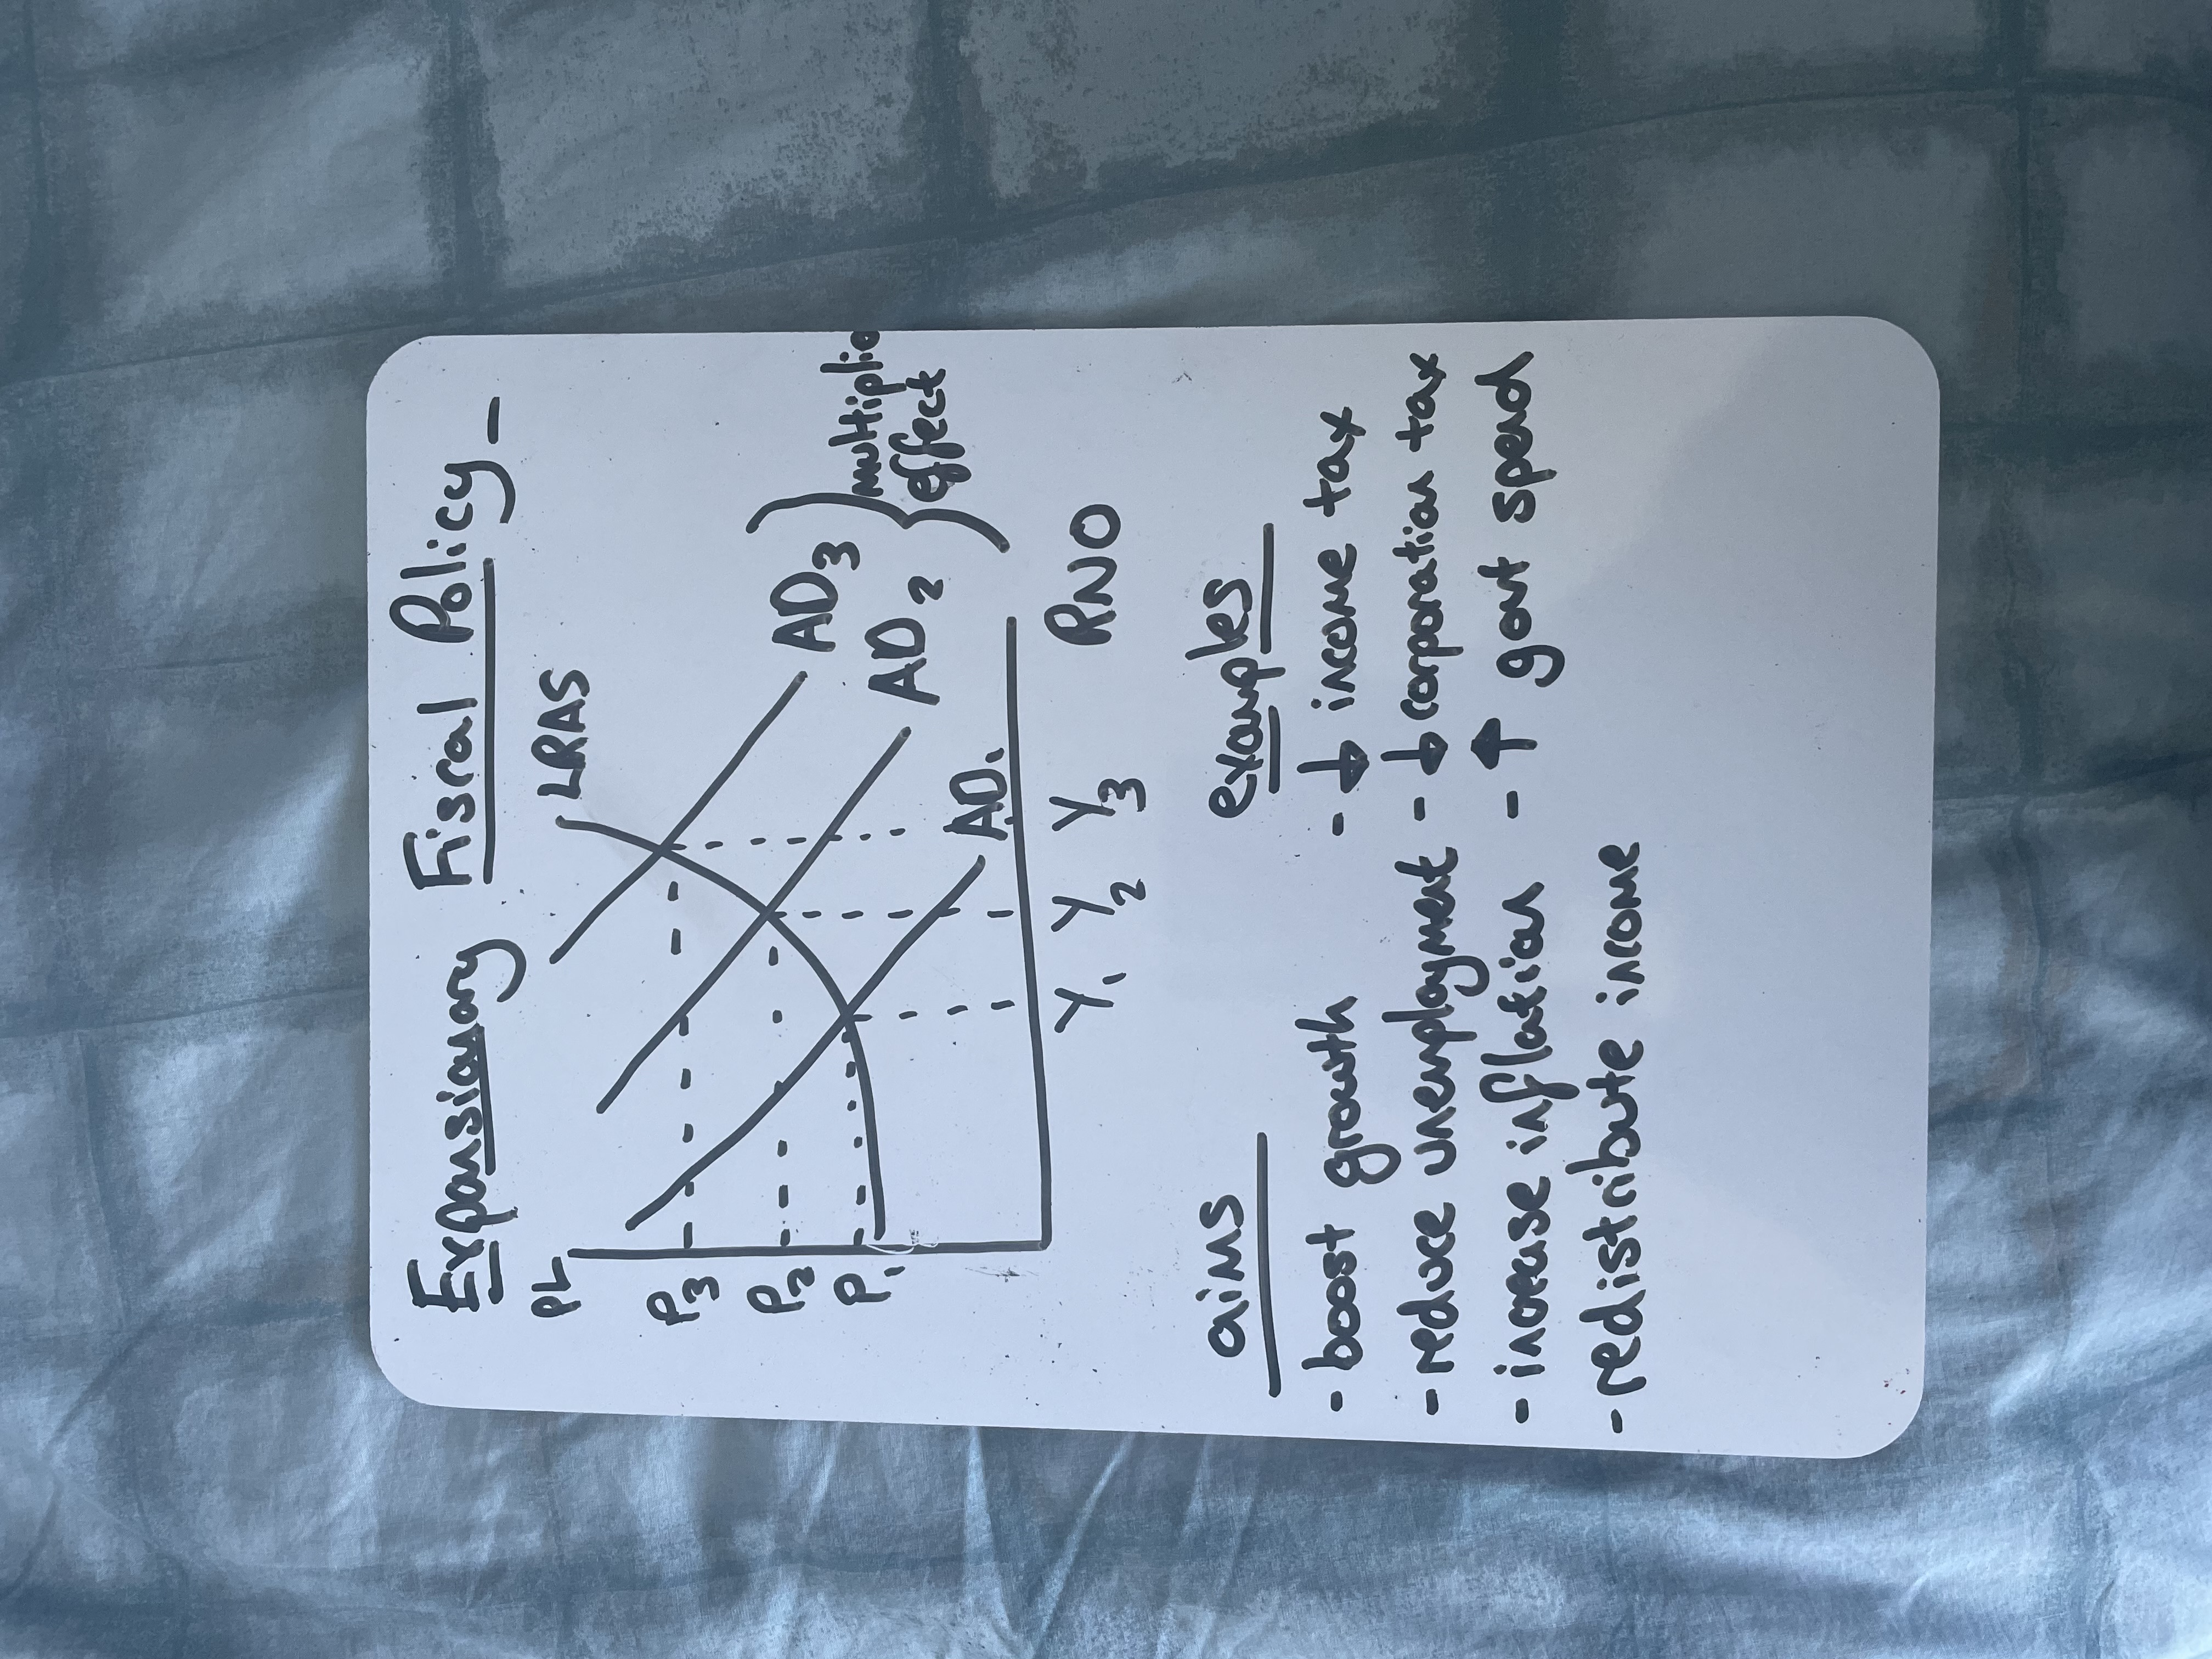 Expansionary Fiscal Policy -
PL
LRAS
P3
P2
P1
AD3
AD2
AD1
multiplic
effect
Y1 Y2 Y3 RNO
aims
- boost growth
- reduce unemployment
- increase inflation
- redistribute income
examples
- ↓ income tax
- ↓ corporation tax
- ↑ govt spend